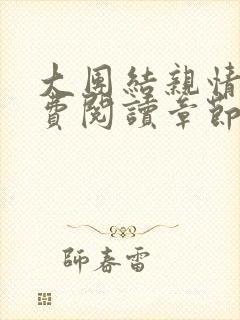 大團結親情
費閱讀章節
師春雷